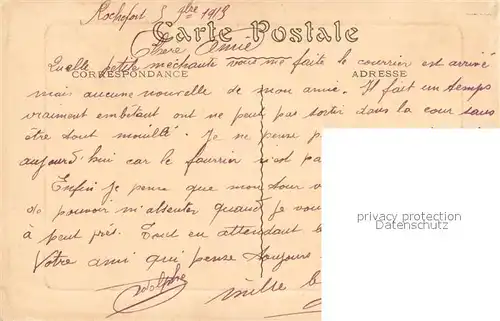 Rochefort 5 9bre 1915
Carte Postale
Chère Amie
Quelle petite méchante vous me faite le courrier est arrivé
CORRESPONDANCE ADRESSE
mais aucune nouvelle de mon amie. Il fait un temps
vraiment embêtant ont ne peut pas sortir dans la cour sans
être tout mouillé. Je ne pense p
aujourd'hui car le fourrier n'est pa
Enfin je pense que mon tour v
de pouvoir m'absenter quand je vou
à peut près. Tout en attendant l
Votre ami qui pense toujours
Adolphe mille b
privacy protection
Datenschutz